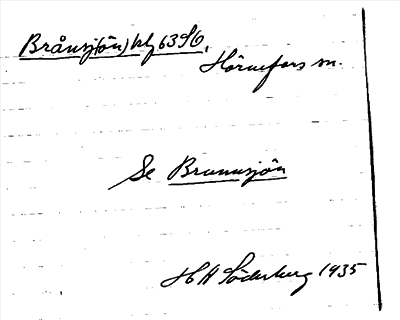 Brånsjön) blj 63SO,
Hörnefors sn.
Se Brunnsjön
H H Söderberg 1935